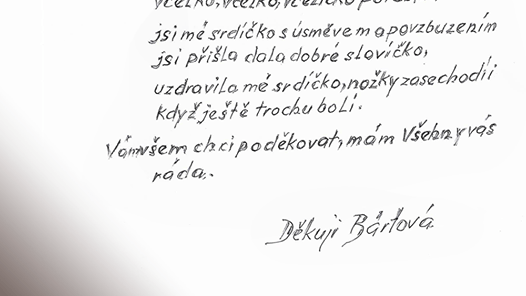 včelko, včelko, včeličko
jsi mé srdíčko s úsměvem a povzbuzením
jsi přišla dala dobré slovíčko,
uzdravila mé srdíčko, nožky zase chodíi
když ještě trochu bolí.
Vám všem chci poděkovat, mám Všechny vás
ráda.
Děkuji Bártová